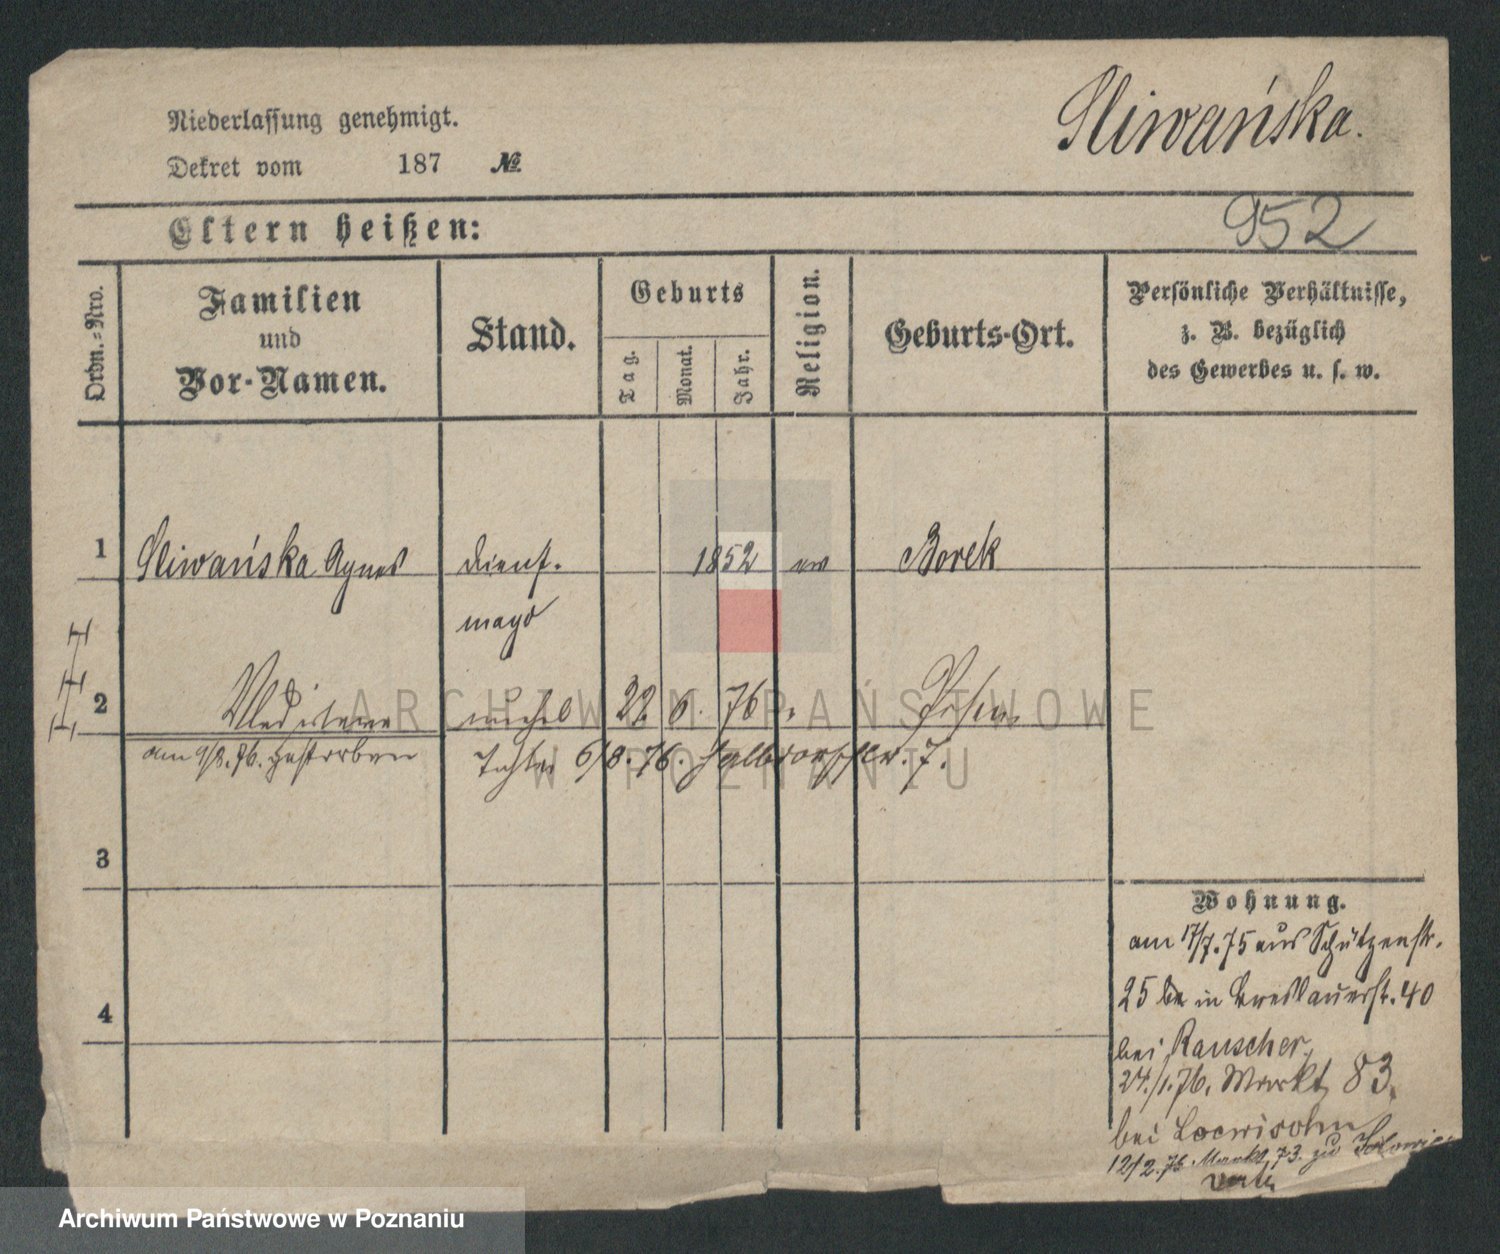 Niederlassung genehmigt.
Sliwańska.
Dekret vom 187 №
952
Eltern heißen:
Ordn.-Nro.
Familien
und
Vor-Namen.
Stand.
Geburts
Tag.
Monat.
Jahr.
Religion.
Geburts-Ort.
Persönliche Verhältnisse,
z. B. bezüglich
des Gewerbes u. s. w.
1 Sliwańska Agnes dienst- 1852 Borek
magd
2 unehel 22. 6. 76. Posen
am 9/8. 76. gestorben Tochter 6/8. 76. Halbdorfstr. 7.
3
4
Wohnung.
am 17/7. 75 aus Schützenstr.
25 in Breslauerstr. 40
bei Rauscher,
24./1. 76. Markt 83.
bei Loewisohn
12/2. 76. Markt 73. zu
ARCHIWUM PAŃSTWOWE
W POZNANIU
Archiwum Państwowe w Poznaniu